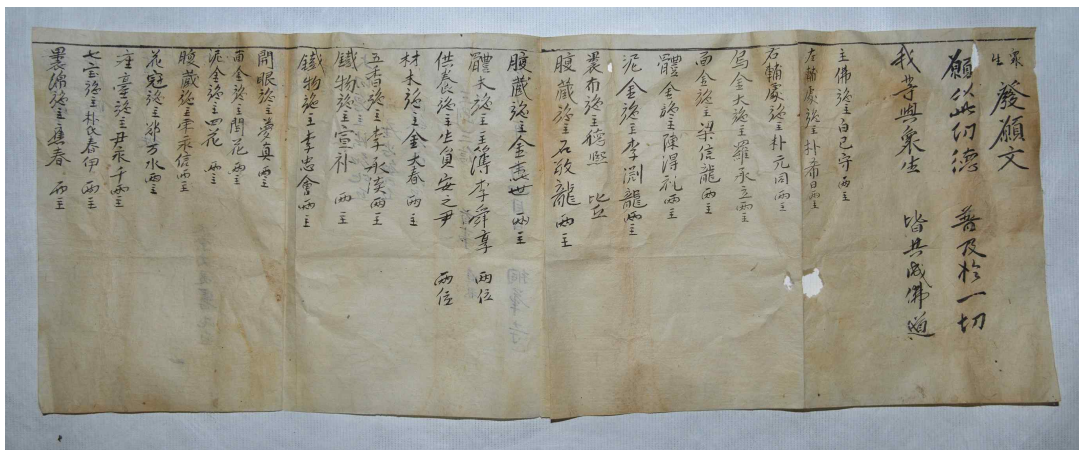 衆生 發願文
願以此功德 普及於一切
我等與衆生 皆共成佛道
主佛施主白已守兩主
左輔處施主朴希日兩主
右輔處施主朴元同兩主
烏金大施主羅承立兩主
面金施主梁信龍兩主
體金施主陳淂礼兩主
泥金施主李渕龍兩主
裹布施主德熙 比丘
腹藏施主石敬龍兩主
腹藏施主金 世 兩主
體木施主主簿李舜享 兩位
供養施主生員安之尹 兩位
材木施主金大春 兩主
五香施主李永淡兩主
鐵物施主宣补 兩主
鐵物施主李忠會兩主
開眼施主 真兩主
面金施主閏花 兩主
泥金施主四花 兩主
腹藏施主宋承信兩主
花冠施主鄭万水兩主
座臺施主尹承千兩主
七宝施主朴氏春伊 兩主
裹綿施主 春 兩主